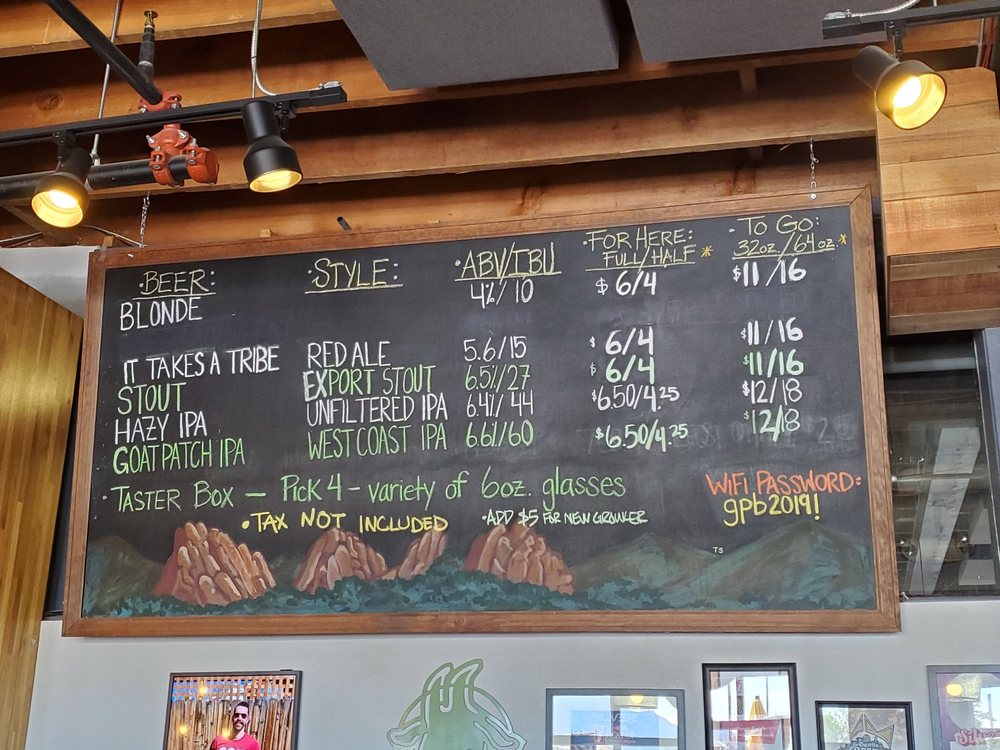 ·BEER: ·STYLE: ·ABV/IBU ·FOR HERE: FULL/HALF * ·TO GO: 32oz./64oz.*
BLONDE 4%/10 $6/4 $11/16
IT TAKES A TRIBE RED ALE 5.6/15 $6/4 $11/16
STOUT EXPORT STOUT 6.5%/27 $6/4 $11/16
HAZY IPA UNFILTERED IPA 6.4%/44 $6.50/4.25 $12/18
GOAT PATCH IPA WEST COAST IPA 6.6%/60 $6.50/4.25 $12/18
·TASTER BOX — PICK 4 - variety of 6oz. glasses
WIFI PASSWORD:
gpb2019!
·TAX NOT INCLUDED ·ADD $5 FOR NEW GROWLER
TS